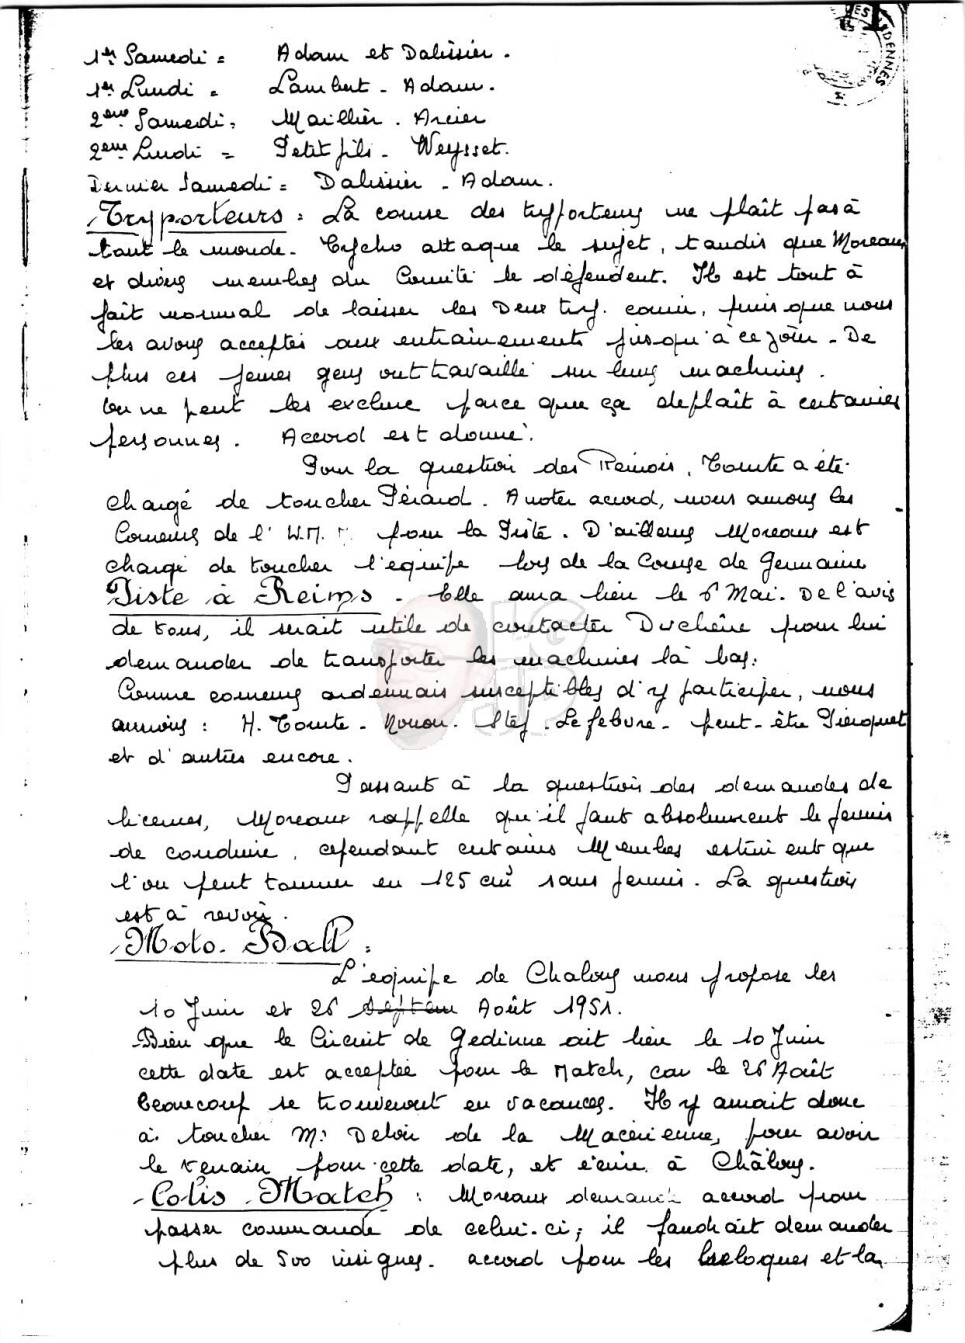 1er Samedi = Adam et Dalissier.
1er Lundi = Lambert - Adam.
2eme Samedi = Maillier. Arcier
2eme Lundi = Petitfils - Weysset.
Dernier Samedi = Dalissier - Adam.
Tryporteurs : La course des tryporteurs ne plaît pas à
tout le monde. Cycho attaque le sujet, tandis que Moreaux
et divers membres du Comité le défendent. Il est tout à
fait normal de laisser les Deux try. courir, puis que nous
les avons acceptés aux entrainements jusqu'à ce jour. De
plus ces jeunes gens ont travaillé sur leurs machines.
On ne peut les exclure parce que ça deplaît à certaines
personnes. Accord est donné.
Pour la question des Rémois, Comte a été
chargé de toucher Pérard. A noter accord, nous aurons les
Coureurs de l'U.M. pour la Piste. D'ailleurs Moreaux est
chargé de toucher l'équipe lors de la Course de Germaine
Piste à Reims. Elle aura lieu le 6 Mai. De l'avis
de tous, il serait utile de contacter Duchêne pour lui
demander de transporter les machines là bas.
Comme coureurs ardennais susceptibles d'y participer, nous
aurions : H. Comte - Nonon. Stef. Lefebvre - peut-être Pierquet
et d'autres encore.
Passant à la question des demandes de
licences, Moreaux rappelle qu'il faut absolument le permis
de conduire, cependant certains Membres estiment que
l'on peut tourner en 125 cm3 sans permis. La question
est à revoir.
Moto-Ball :
L'equipe de Chalons nous propose les
10 Juin et 26 Septem Août 1951.
Bien que le Circuit de Gedinne ait lieu le 10 Juin
cette date est acceptée pour le Match, car le 26 Août
beaucoup se trouveront en vacances. Il y aurait donc
à toucher Mr Deloir de la Macérienne, pour avoir
le terrain pour cette date, et écrire à Châlons.
Colis Match : Moreaux demande accord pour
passer commande de celui-ci; il faudrait demander
plus de 500 insignes. accord pour les breloques et la
DES ARDENNES